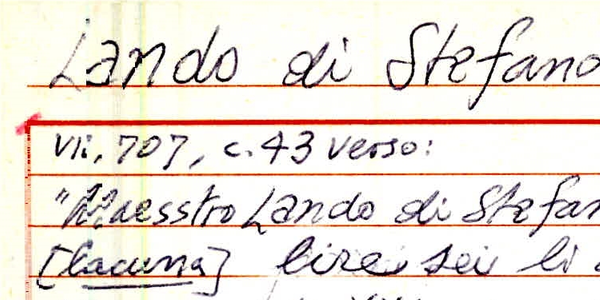 Lando di Stefano
Vii, 707, c. 43 verso:
"Maesstro Lando di Stefan
[lacuna] lire sei li